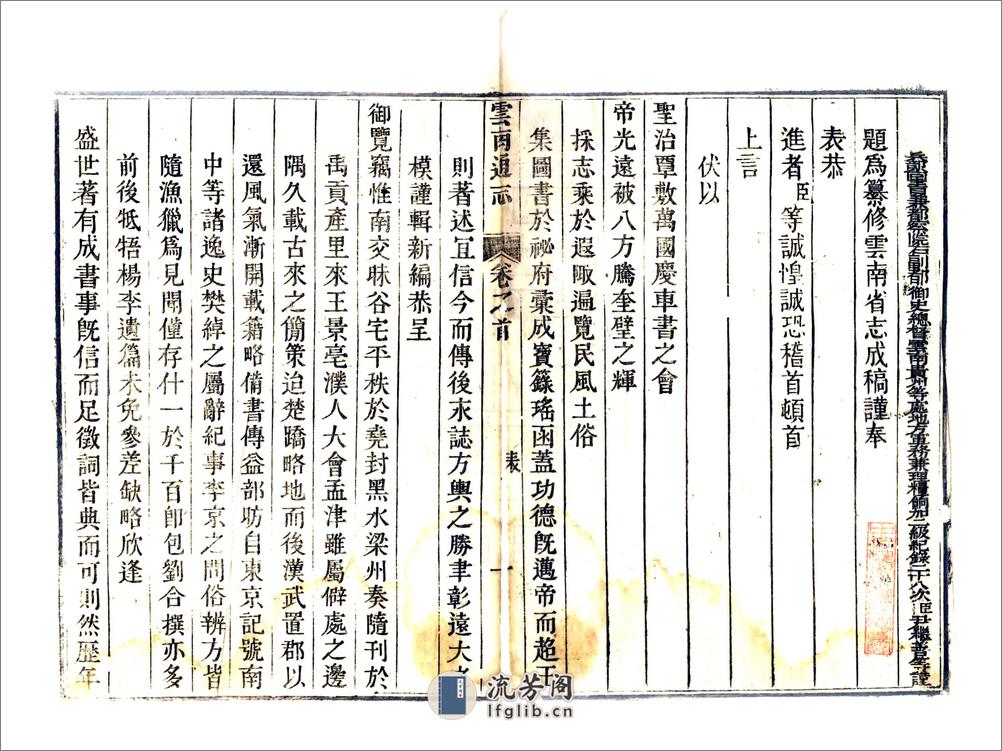 都察院右副都御史總督雲南貴州等處地方軍務兼理糧餉加二級紀錄二十八次臣尹繼善等謹
題爲纂修雲南省志成稿謹奉
表恭
進者臣等誠惶誠恐稽首頓首
上言
伏以
聖治覃敷萬國慶車書之會
帝光遠被八方騰奎璧之輝
採志乘於遐陬遍覽民風土俗
集圖書於祕府彙成寶籙瑤函蓋功德旣邁帝而超王
雲南通志 卷之首 表 一
則著述宜信今而傳後求誌方輿之勝聿彰遠大之
模謹輯新編恭呈
御覽竊惟南交昧谷宅平秩於堯封黑水梁州奏隨刊於
禹貢產里來王景亳濮人大會孟津雖屬僻處之邊
隅久載古來之簡策迨楚蹻略地而後漢武置郡以
還風氣漸開載籍略備書傳益部昉自東京記號南
中等諸逸史樊綽之屬辭紀事李京之問俗辨方皆
隨漁獵爲見聞僅存什一於千百卽包劉合撰亦多
前後牴牾楊李遺篇未免參差缺略欣逢
盛世著有成書事旣信而足徵詞皆典而可則然歷年
流芳阁
lfglib.cn